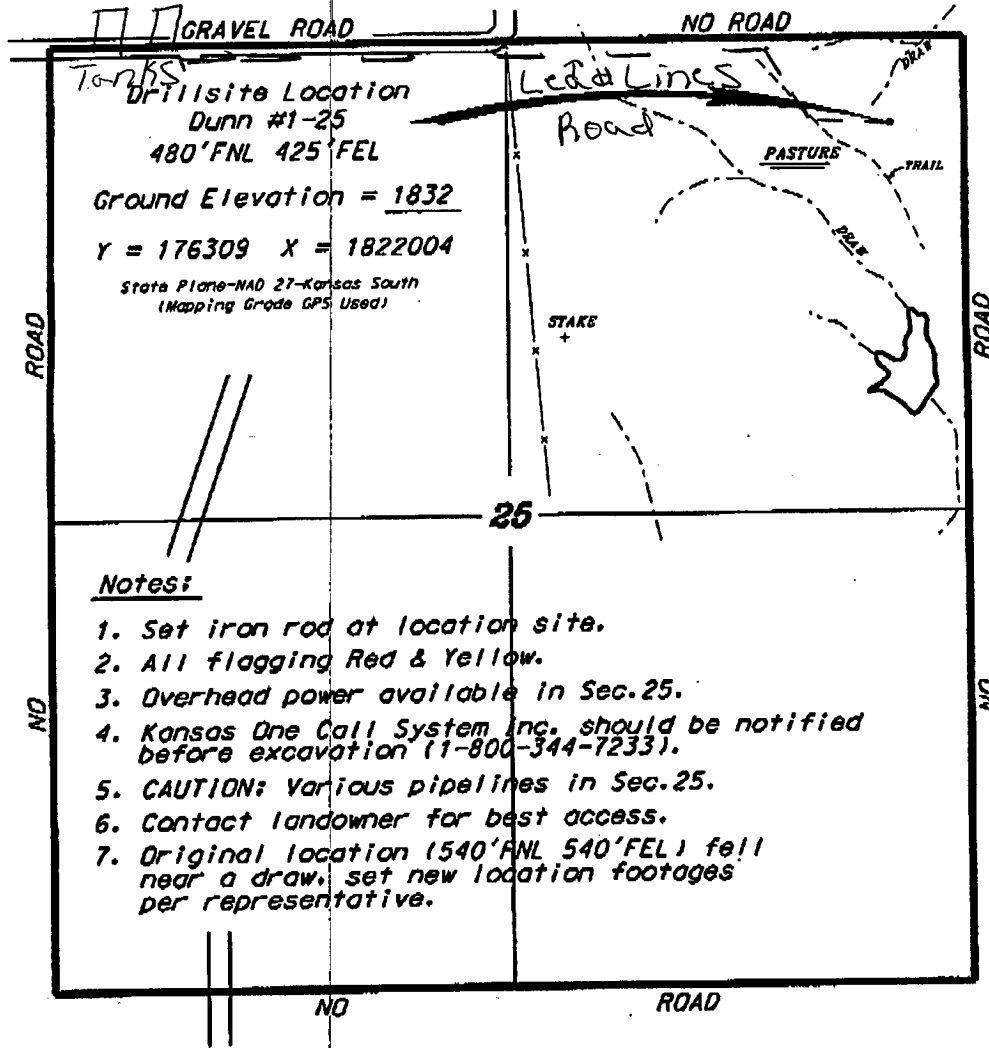 GRAVEL ROAD
NO ROAD
Tanks
Lead Lines
Road
DRAW
Drillsite Location
Dunn #1-25
480'FNL 425'FEL
PASTURE
TRAIL
Ground Elevation = 1832
Y = 176309 X = 1822004
DRAW
State Plane-NAD 27-Kansas South
(Mapping Grade GPS Used)
ROAD
STAKE
ROAD
25
Notes:
1. Set iron rod at location site.
2. All flagging Red & Yellow.
3. Overhead power available in Sec.25.
NO
NO
4. Kansas One Call System Inc. should be notified
before excavation (1-800-344-7233).
5. CAUTION: Various pipelines in Sec.25.
6. Contact landowner for best access.
7. Original location (540'FNL 540'FEL) fell
near a draw, set new location footages
per representative.
NO
ROAD